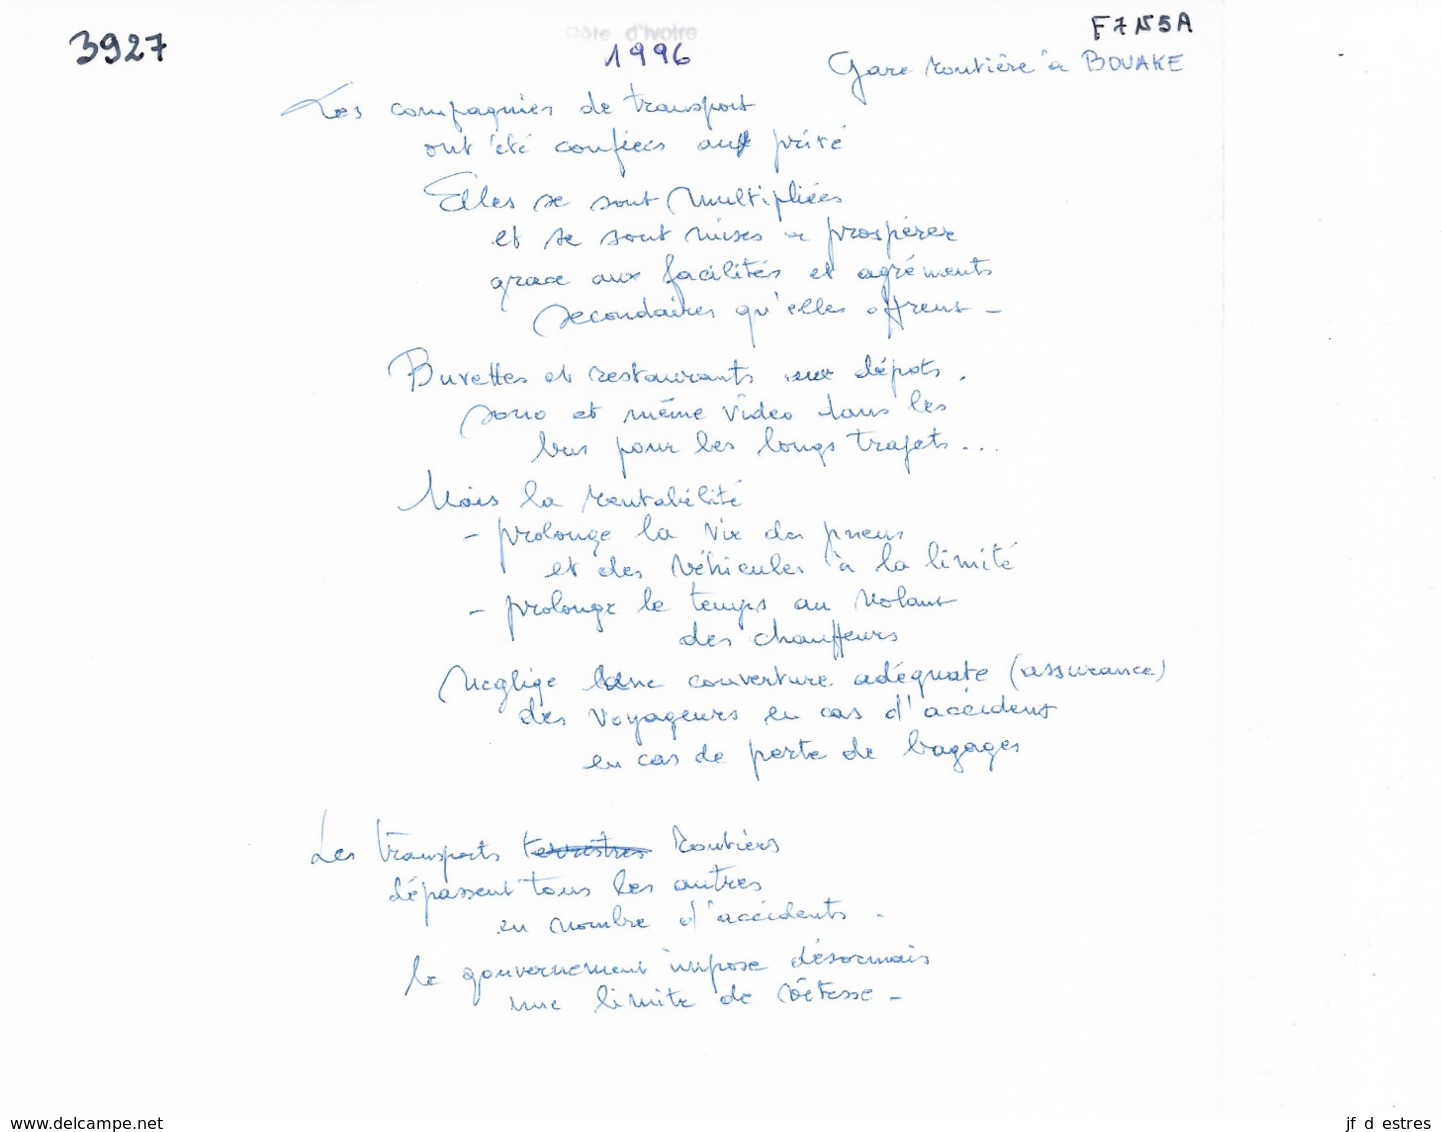 3927
Côte d'Ivoire
1996
F7N55A
Gare routière à BOUAKE
Les compagnies de transport
ont été confiées au privé
Elles se sont multipliées
et se sont mises à prospérer
grace aux facilités et agréments
secondaires qu'elles offrent -
Buvettes et restaurants aux dépôts,
sono et même vidéo dans les
bus pour les longs trajets...
Mais la rentabilité
- prolonge la vie des pneus
et des véhicules à la limite
- prolonge le temps au volant
des chauffeurs
Neglige une couverture adéquate (assurance)
des voyageurs en cas d'accident
en cas de perte de bagages
Les transports terrestres routiers
dépassent tous les autres
en nombre d'accidents.
le gouvernement impose désormais
une limite de vitesse -
www.delcampe.net
jf d estres